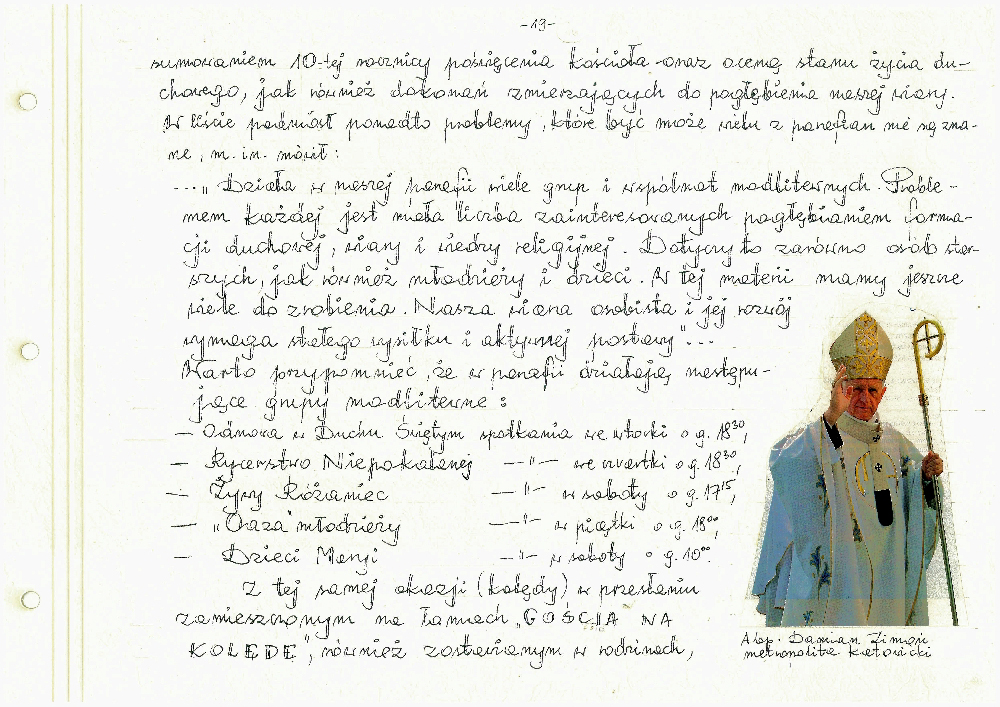 -13-
sumowaniem 10-tej rocznicy poświęcenia kościoła oraz oceną stanu życia du-
chowego, jak również dokonań zmierzających do pogłębienia naszej wiary.
W liście podniósł ponadto problemy, które być może wielu z parafian nie są zna-
ne, m.in. mówił:
..." Działa w naszej parafii wiele grup i wspólnot modlitewnych. Proble-
mem każdej jest mała liczba zainteresowanych pogłębianiem forma-
cji duchowej, wiary i wiedzy religijnej. Dotyczy to zarówno osób star-
szych, jak również młodzieży i dzieci. W tej materii mamy jeszcze
wiele do zrobienia. Nasza wiara osobista i jej rozwój
wymaga stałego wysiłku i aktywnej postawy"...
Warto przypomnieć, że w parafii działają następu-
jące grupy modlitewne:
— Odnowa w Duchu Świętym spotkania we wtorki o g. 18³⁰,
— Rycerstwo Niepokalanej —"— we czwartki o g. 18³⁰,
— Żywy Różaniec —"— w soboty o g. 17¹⁵,
— „Oaza" młodzieży —"— w piątki o g. 18⁰⁰,
— Dzieci Maryi —"— w soboty o g. 10⁰⁰.
Z tej samej okazji (kolędy) w przesłaniu
zamieszczonym na łamach „GOŚCIA NA
KOLĘDĘ", również zostawianym w rodzinach,
Abp. Damian Zimoń
metropolita katowicki